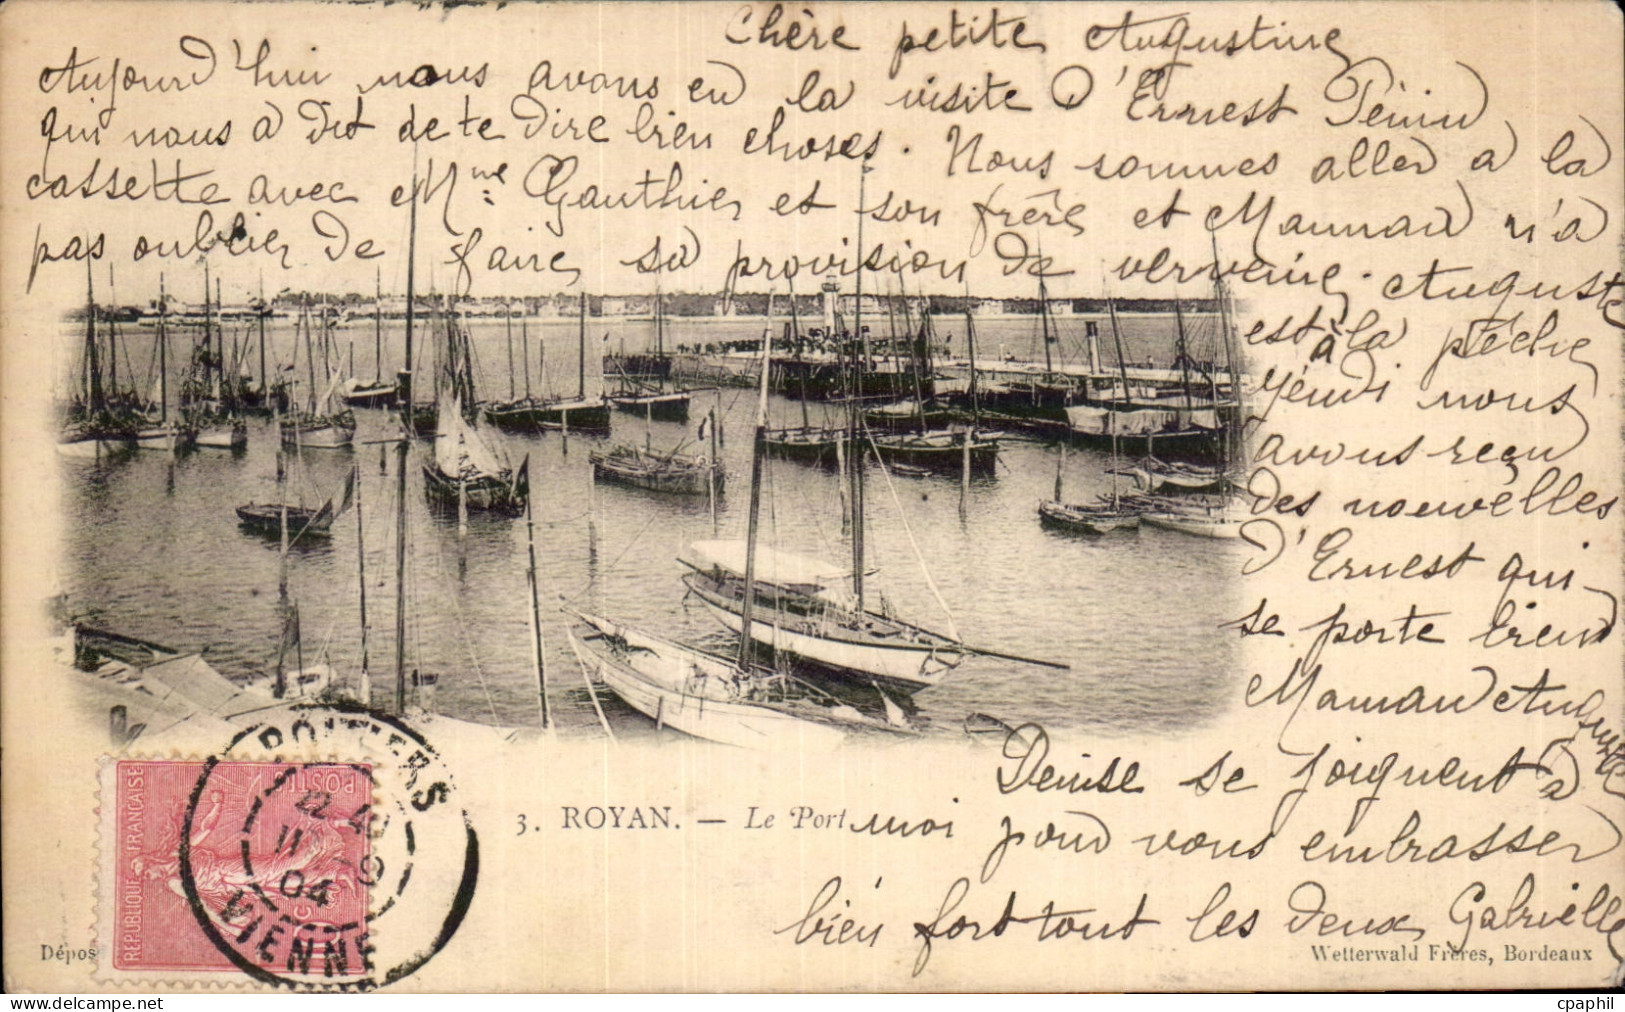 Chère petite Augustine
Aujourd'hui nous avons eu la visite d'Ernest Pénin
qui nous a dit de te dire bien choses. Nous sommes aller a la
cassette avec Mme Gauthier et son frère et Maman n'a
pas oublier de faire sa provision de verveine. Auguste
est à la pêche
jeudi nous
avons reçu
des nouvelles
d'Ernest qui
se porte bien
Maman Auguste
Denise se joignent à
moi pour vous embrasser
bien fort tout les deux Gabrielle
3. ROYAN. — Le Port
REPUBLIQUE FRANÇAISE
POSTES
10
POITIERS
11 - 9
04
VIENNE
Dépos
Wetterwald Frères, Bordeaux
cpaphil